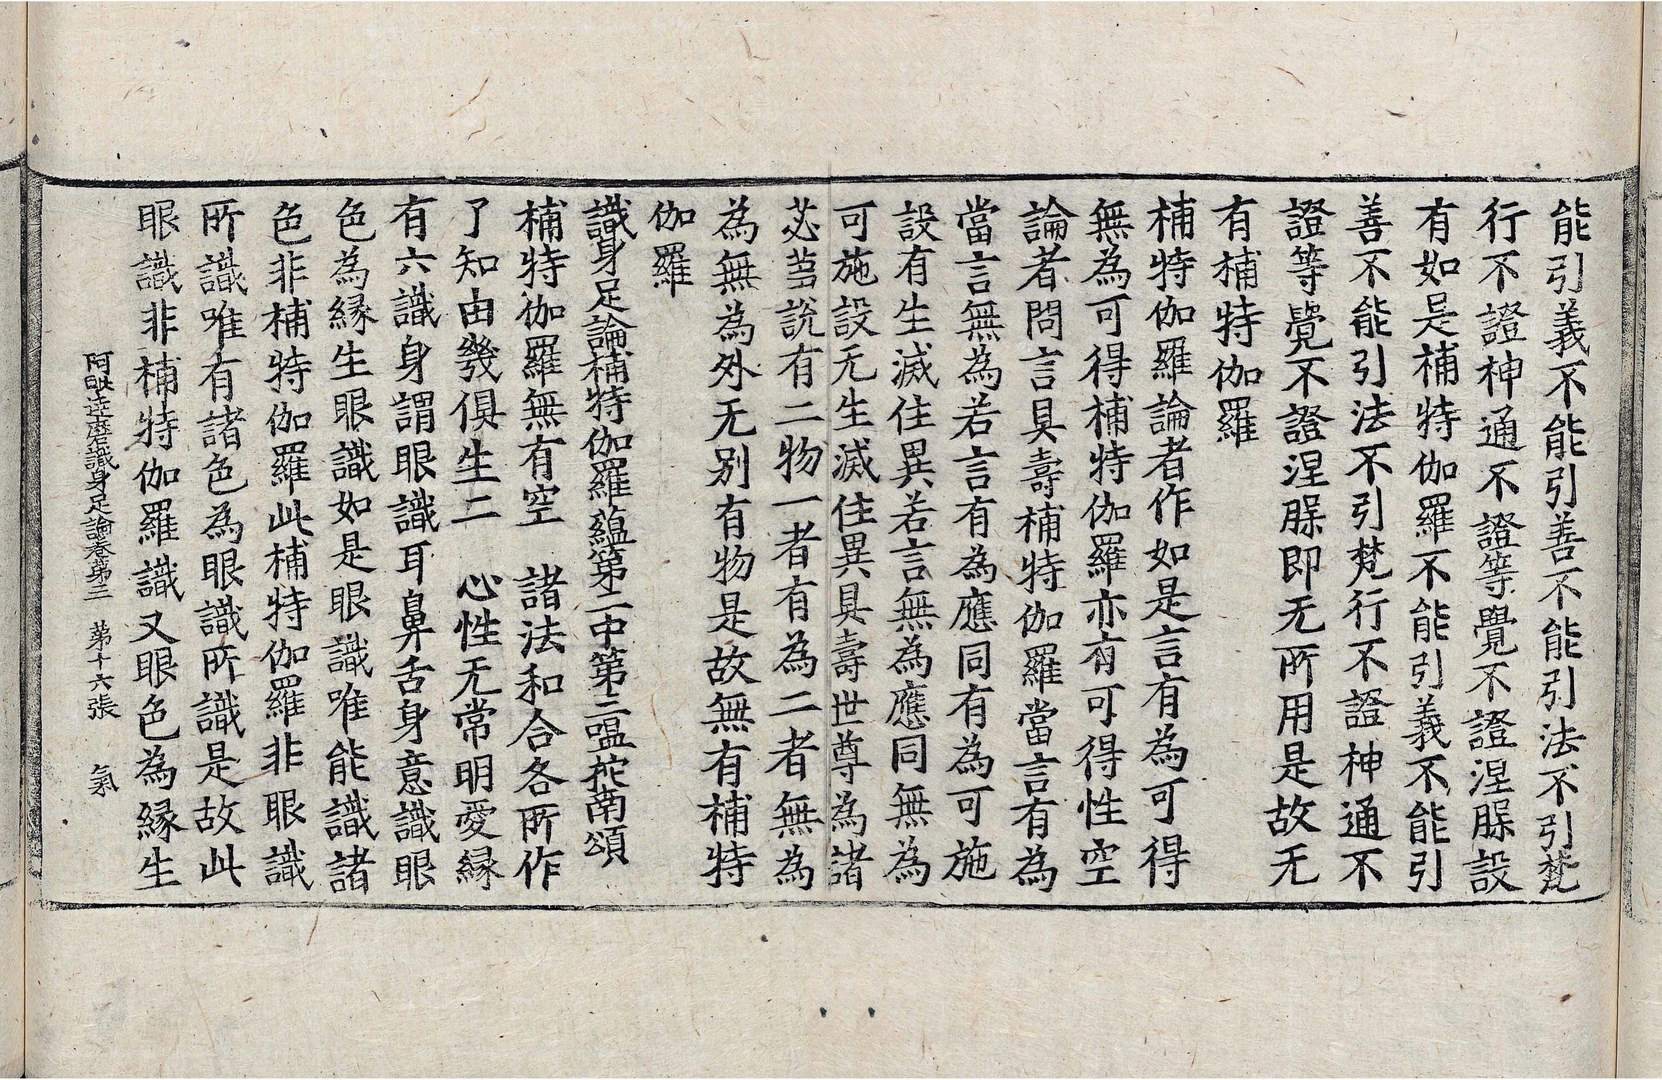 能引義不能引善不能引法不引梵
行不證神通不證等覺不證涅槃設
有如是補特伽羅不能引義不能引
善不能引法不引梵行不證神通不
證等覺不證涅槃即无所用是故无
有補特伽羅
補特伽羅論者作如是言有為可得
無為可得補特伽羅亦有可得性空
論者問言具壽補特伽羅當言有為
當言無為若言有為應同有為可施
設有生滅住異若言無為應同無為
可施設无生滅住異具壽世尊為諸
苾芻說有二物一者有為二者無為
為無為外无別有物是故無有補特
伽羅
識身足論補特伽羅蘊第二中第二嗢拕南頌
補特伽羅無有空　諸法和合各所作
了知由幾俱生二　心性无常明愛縁
有六識身謂眼識耳鼻舌身意識眼
色為縁生眼識如是眼識唯能識諸
色非補特伽羅此補特伽羅非眼識
所識唯有諸色為眼識所識是故此
眼識非補特伽羅識又眼色為縁生
阿毗達磨識身足論卷第三　第十六張　氣